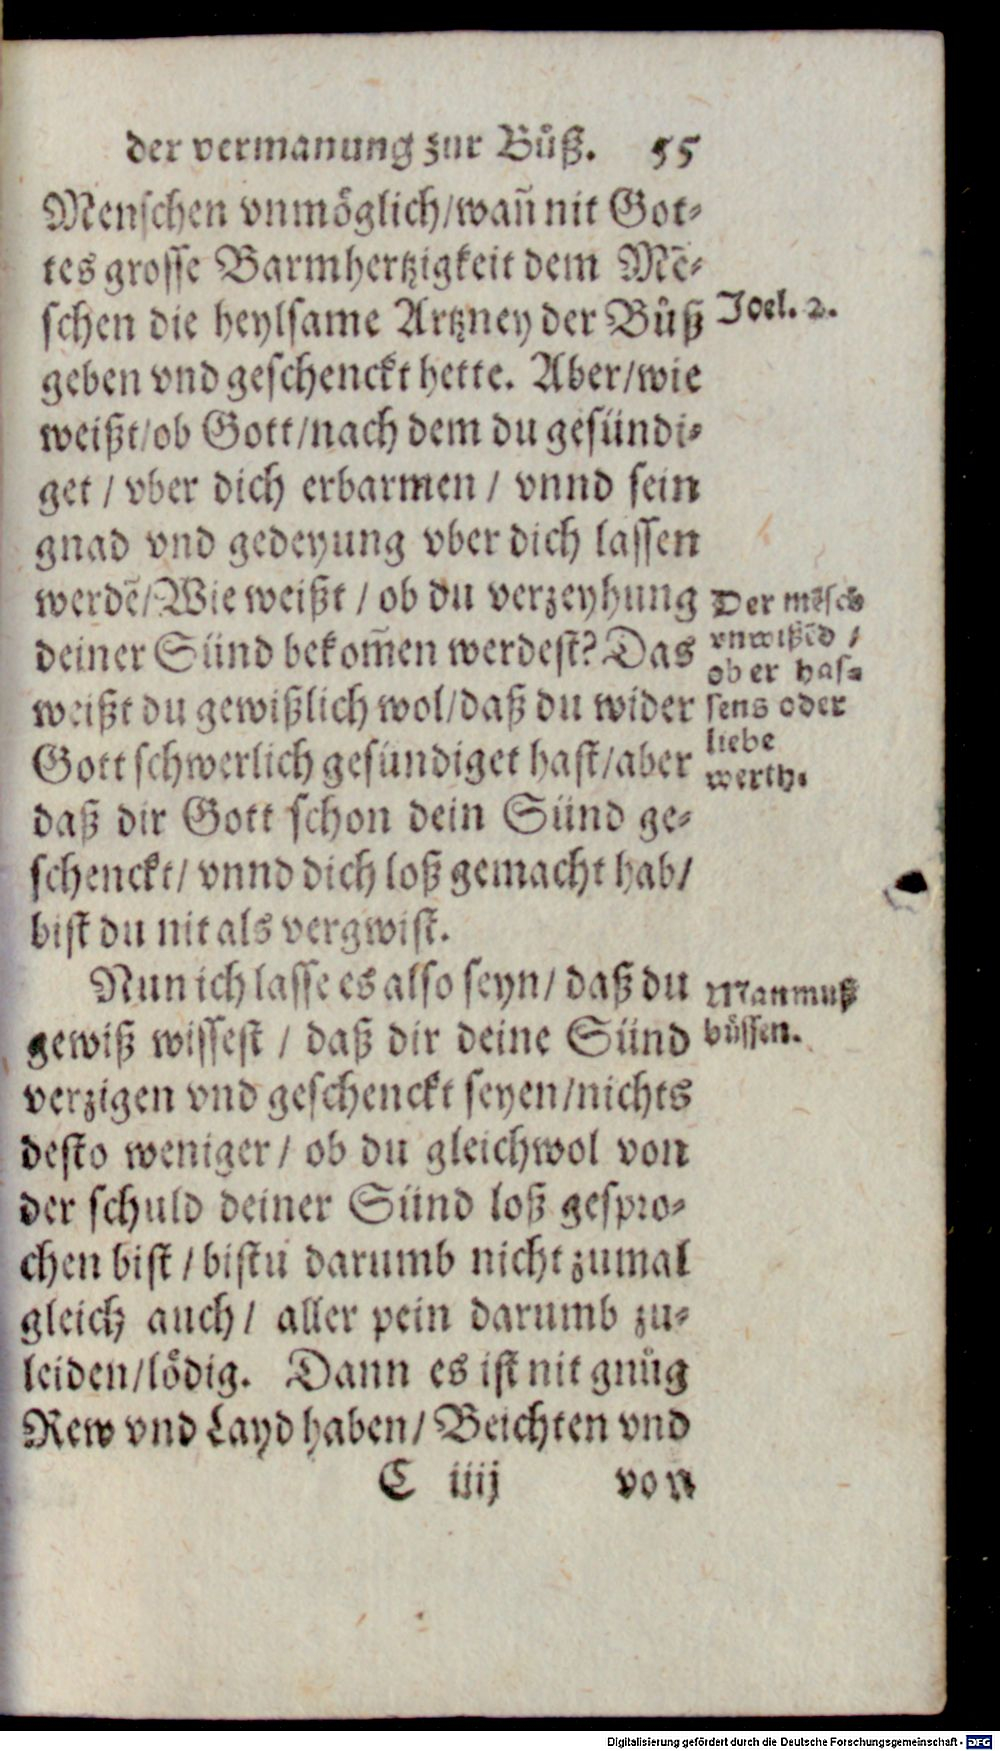 der vermanung zur Buͦß. 55
Menschen vnmöglich/wañ nit Got-
tes grosse Barmhertzigkeit dem Mē-
schen die heylsame Artzney der Buͦß
geben vnd geschenckt hette. Aber/wie
weißt/ob Gott/nach dem du gesündi-
get / vber dich erbarmen / vnnd sein
gnad vnd gedeyung vber dich lassen
werdē/Wie weißt / ob du verzeyhung
deiner Sünd bekom̃en werdest? Das
weißt du gewißlich wol/daß du wider
Gott schwerlich gesündiget hast/aber
daß dir Gott schon dein Sünd ge-
schenckt/ vnnd dich loß gemacht hab/
bist du nit als vergwist.
Nun ich lasse es also seyn/ daß du
gewiß wissest / daß dir deine Sünd
verzigen vnd geschenckt seyen/nichts
desto weniger/ ob du gleichwol von
der schuld deiner Sünd loß gespro-
chen bist / bistu darumb nicht zumal
gleich auch/ aller pein darumb zu-
leiden/lödig. Dann es ist nit gnuͦg
Rew vnd Layd haben/ Beichten vnd
C iiij von
Joel. 2.
Der mēsch
vnwißēd /
ob er has-
sens oder
liebe
werth.
Man muß
buͦssen.
Digitalisierung gefördert durch die Deutsche Forschungsgemeinschaft - DFG